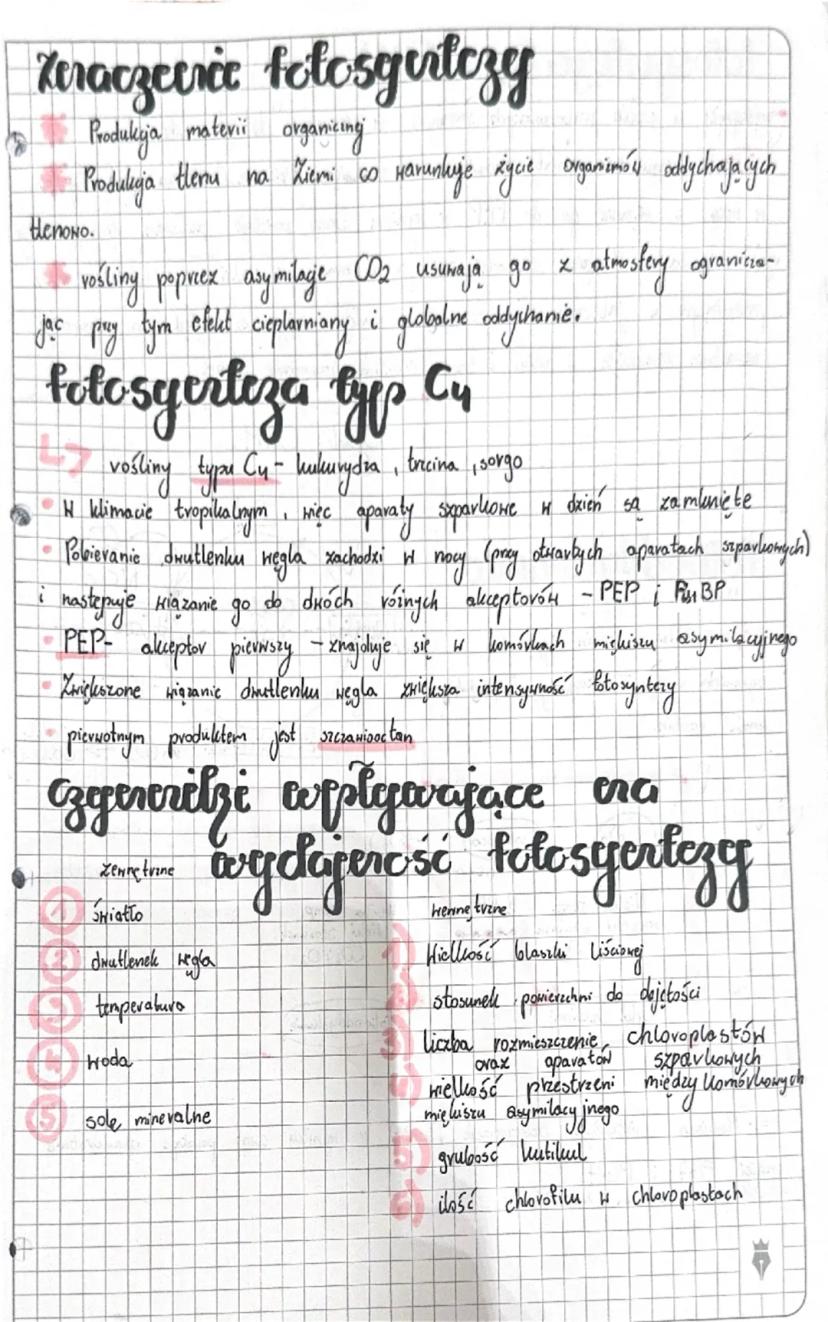 Znaczenie fotosyntezy
Produkcja materii organicznej
Produkcja tlenu na Ziemi co warunkuje życie organizmów oddychających
tlenowo.
rośliny poprzez asymilację CO2 usuwają go z atmosfery ogranicza-
jąc przy tym efekt cieplarniany i globalne oddychanie.
fotosynteza typ C4
rośliny typu C4 - kukurydza, trzcina, sorgo
W klimacie tropikalnym, więc aparaty szparkowe w dzień są zamknięte
Pobieranie dwutlenku węgla zachodzi w nocy (przy otwartych aparatach szparkowych)
i następuje wiązanie go do dwóch różnych akceptorów - PEP i RuBP
PEP- akceptor pierwszy - znajduje się w komórkach miękiszu asymilacyjnego
Zwiększone wiązanie dwutlenku węgla zwiększa intensywność fotosyntezy
pierwotnym produktem jest szczawiooctan
czynniki wpływające na
wydajność fotosyntezy
zewnętrzne
wewnętrzne
1 światło
1 Wielkość blaszki liściowej
2 dwutlenek węgla
2 stosunek powierzchni do objętości
3 temperatura
3 liczba rozmieszczenie chloroplastów
oraz aparatów szparkowych
4 woda
4 wielkość przestrzeni międzykomórkowych
miękiszu asymilacyjnego
5 sole mineralne
5 grubość kutikul
6 ilość chlorofilu w chloroplastach